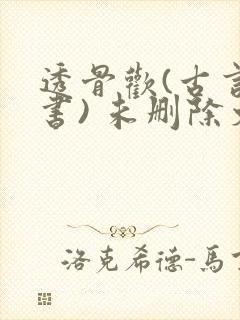 透骨歡(古言
書)未刪除
洛克希德-馬